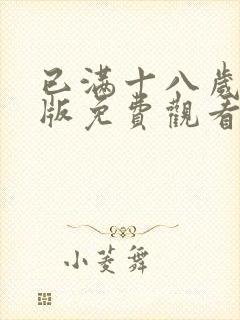 已滿十八歲
版免費觀看
小菱舞